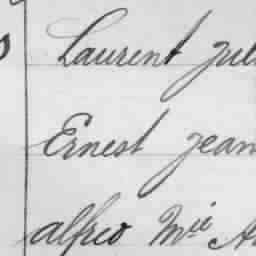 Laurent jul
Ernest jean
alfred Mie A